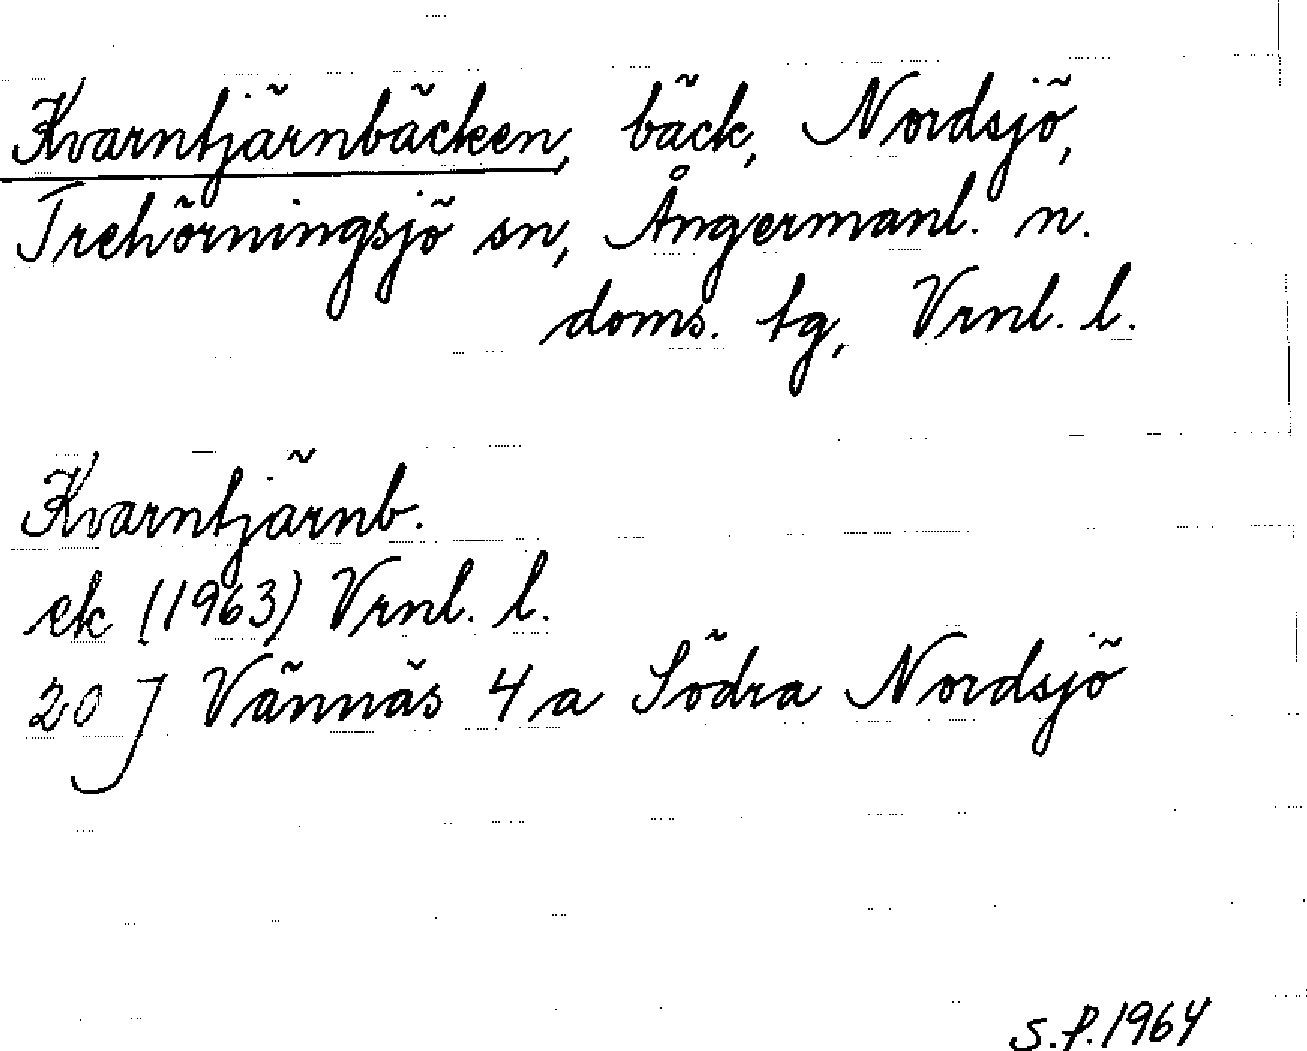 Kvarntjärnbäcken, bäck, Nordsjö,
Trehörningsjö sn, Ångermanl. n.
doms. tg, Vrnl. l.
Kvarntjärnb.
ek (1963) Vrnl. l.
20 J Vännäs 4 a Södra Nordsjö
S.P.1964